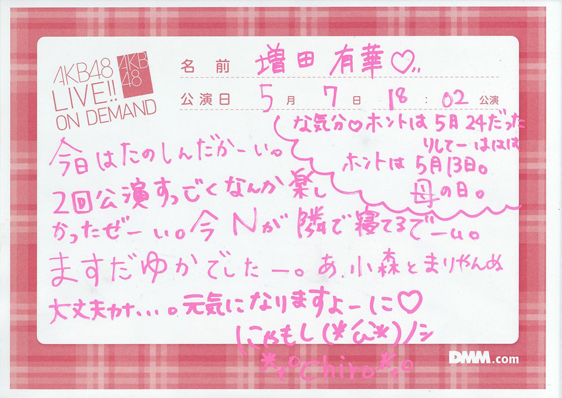 AKB48
LIVE!!
ON DEMAND
AKB
48
名前 増田 有華♡
公演日 5月 7日 18:02 公演
な気分♡ホントは5月24だった
りしてーははは
ホントは5月13日。
母の日。
今日はたのしんだかーい。
2回公演すっごくなんか楽し
かったぜーい。今Nが隣で寝てるでーい。
ますだゆかでしたー。あ、小森とまりやんぬ
大丈夫カナ、、、。元気になりますよーに♡
にゃもし(*´ω`*)ノシ
chiro
DMM.com